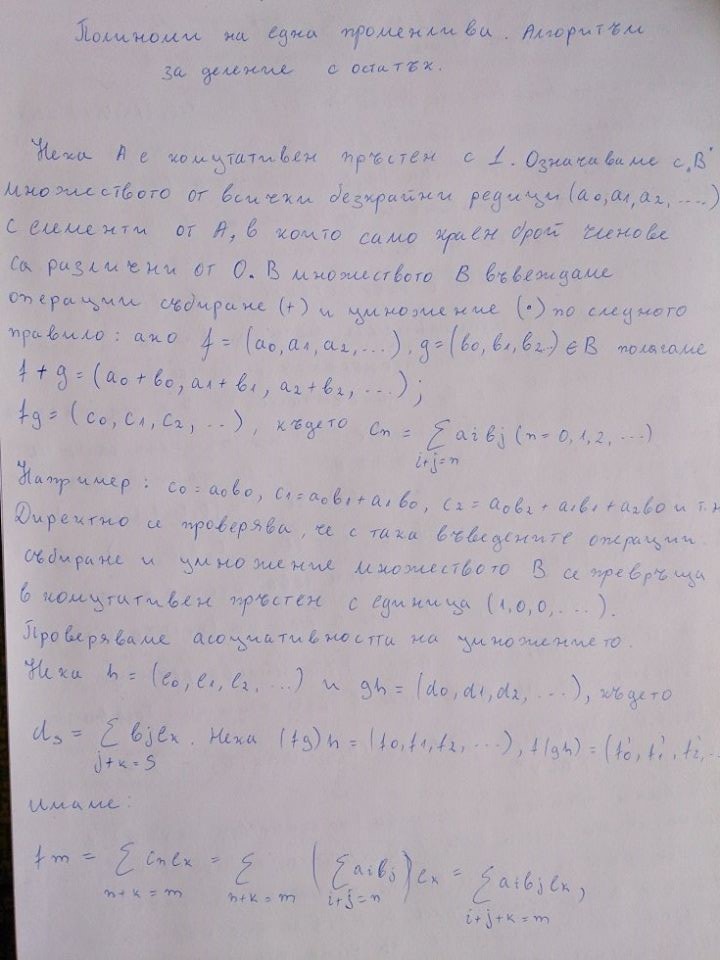 Полиноми на една променлива. Алгоритъм
за деление с остатък.
Нека A е комутативен пръстен с 1. Означаваме с „B"
множеството от всички безкрайни редици (a0, a1, a2, ....)
с елементи от A, в които само краен брой членове
са различни от 0. В множеството B въвеждаме
операции събиране (+) и умножение (•) по следното
правило: ако f = (a0, a1, a2, ...), g = (b0, b1, b2..) ∈ B полагаме
f + g = (a0 + b0, a1 + b1, a2 + b2, ...);
fg = (c0, c1, c2, ...), където cn = ∑ aibj (n = 0, 1, 2, ...)
i+j=n
Например: c0 = a0b0, c1 = a0b1 + a1b0, c2 = a0b2 + a1b1 + a2b0 и т.н
Директно се проверява, че с така въведените операции
събиране и умножение множеството B се превръща
в комутативен пръстен с единица (1, 0, 0, ...).
Проверяваме асоциативността на умножението.
Нека h = (l0, l1, l2, ...) и gh = (d0, d1, d2, ...), където
ds = ∑ bjlk. Нека (fg)h = (f0, f1, f2, ...), f(gh) = (f'0, f'1, f'2, ..
j+k=s
Имаме:
fm = ∑ cnlk = ∑ (∑ aibj) lk = ∑ aibjlk,
n+k=m n+k=m i+j=n i+j+k=m